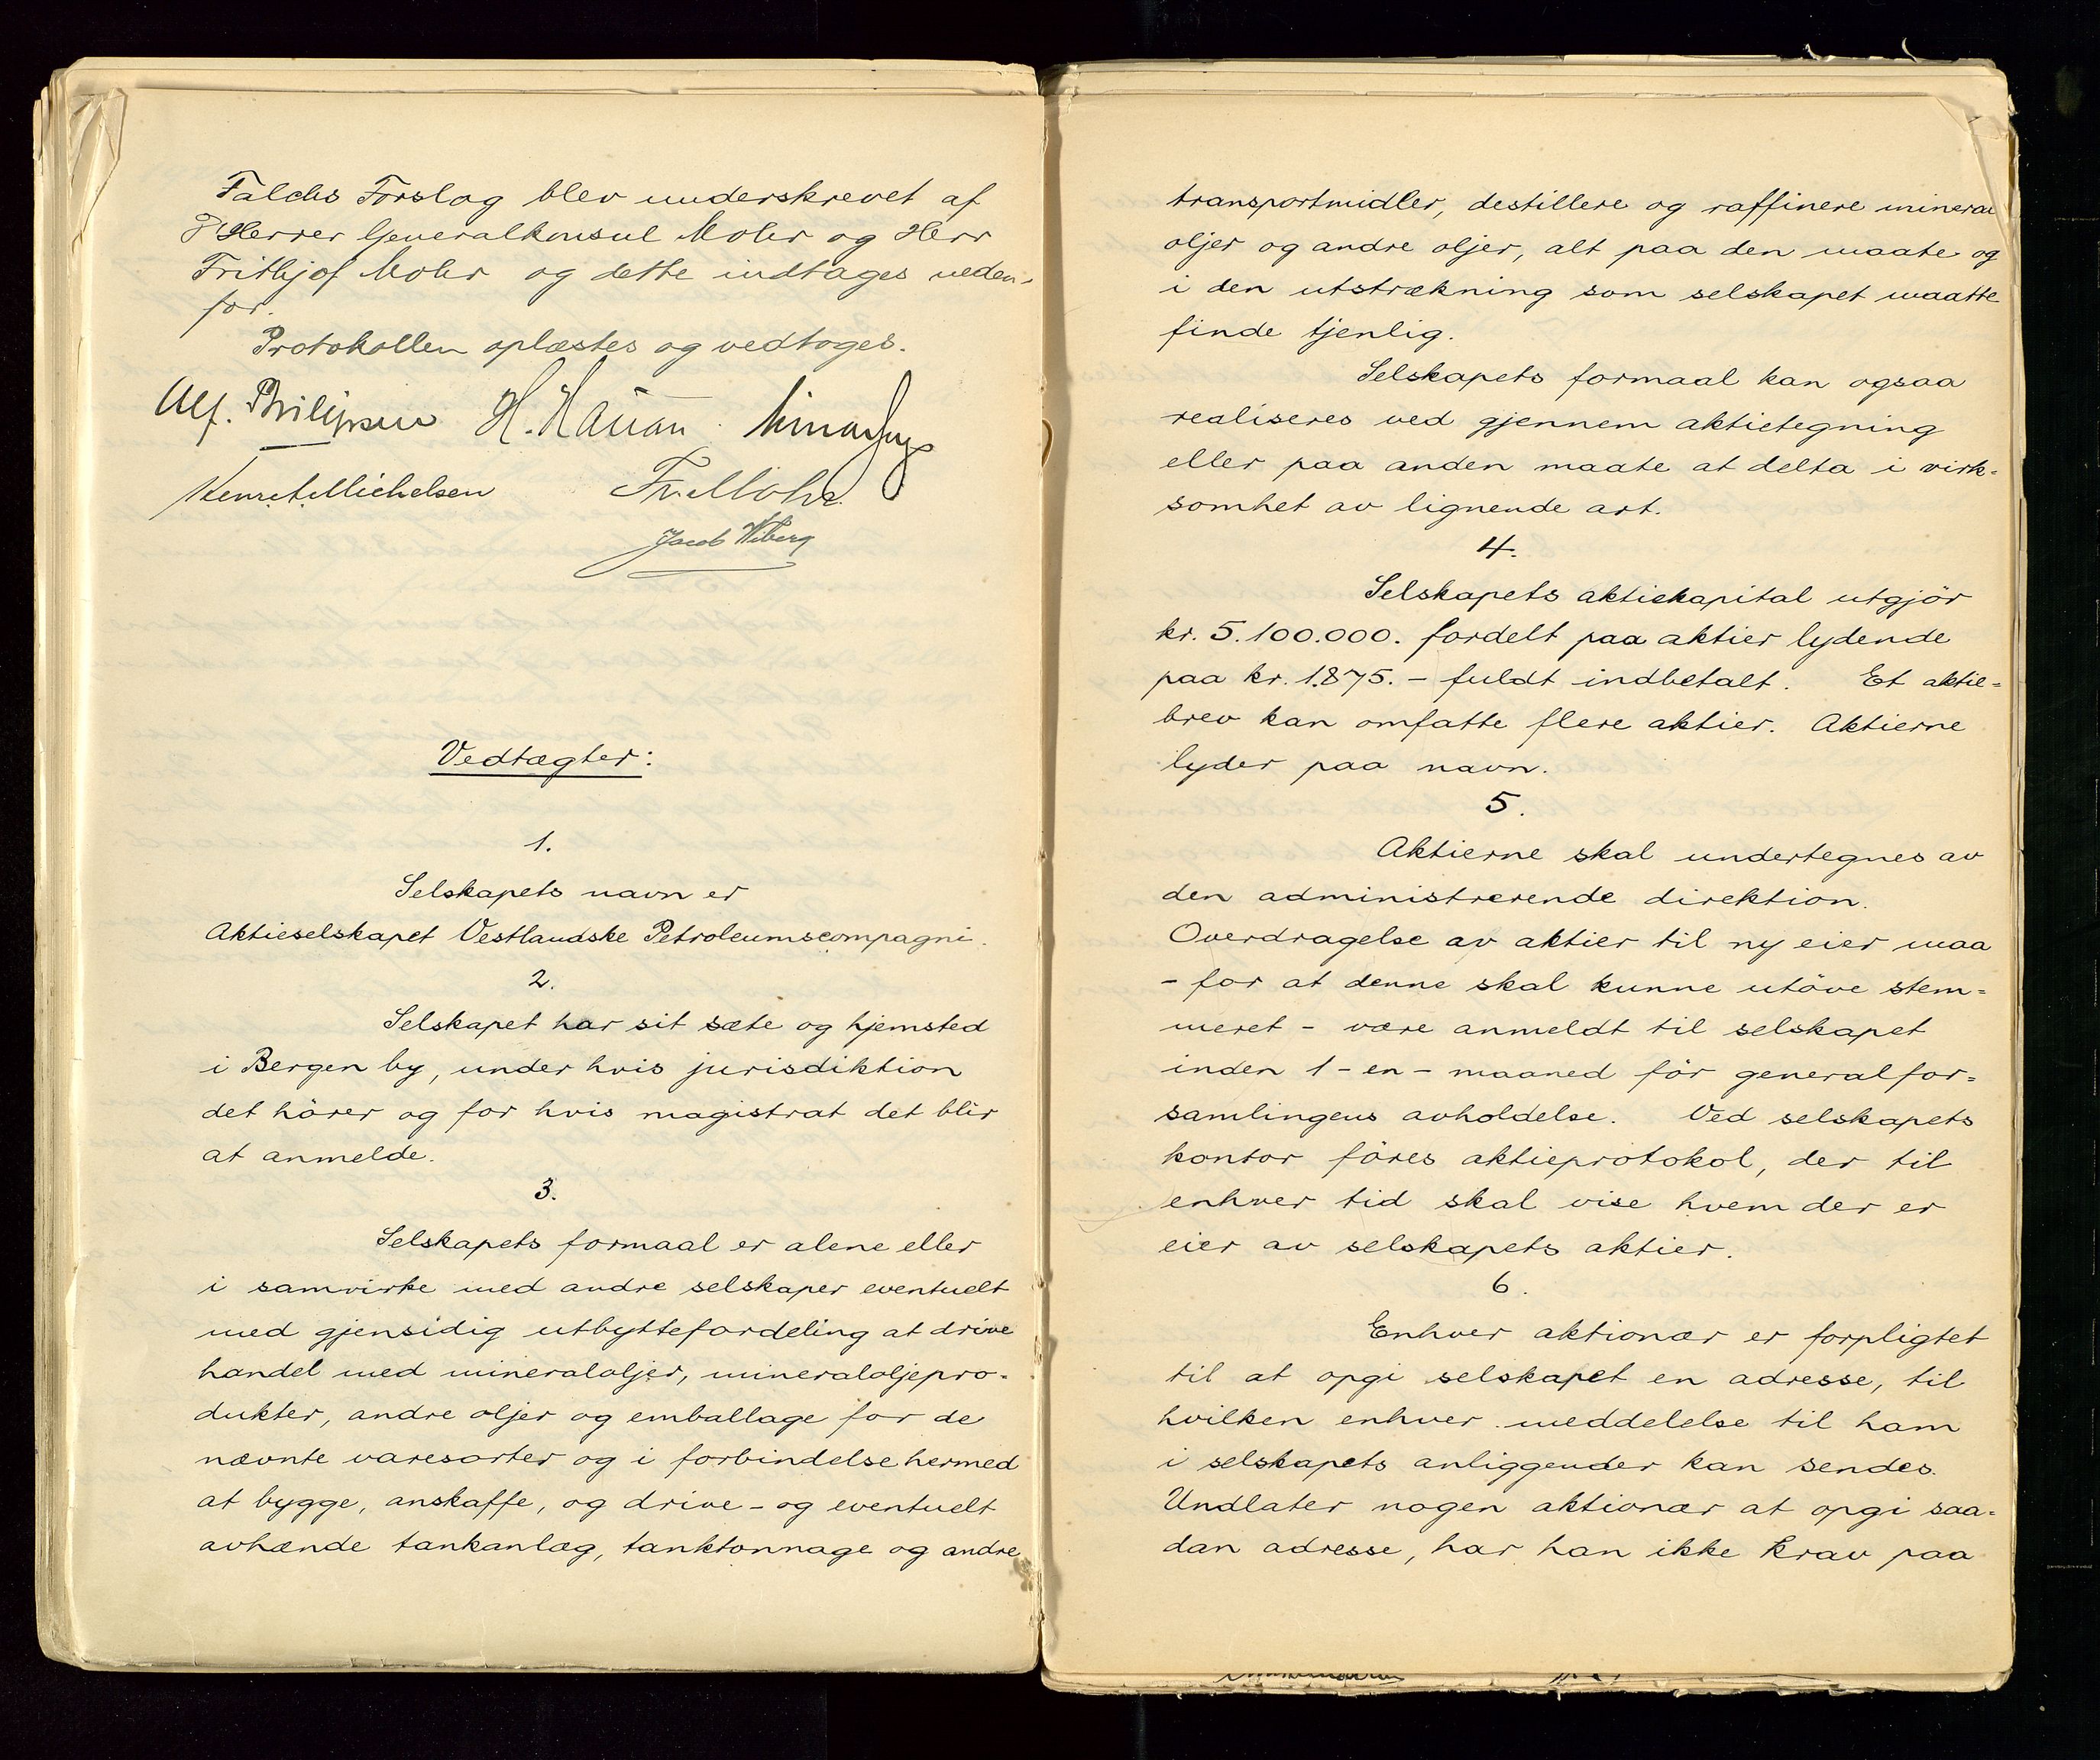 Falchs Forslag blev underskrevet af
Herrer Generalkonsul Mohr og Herr
Frithjof Mohr og dette indtages neden-
for.
Protokollen oplæstes og vedtoges.
Alf. Philipsen H. Hauan
Michelsen Fr. Mohr
Jacob Wiberg
Vedtægter:
1.
Selskapets navn er
Aktieselskapet Vestlandske Petroleumscompagni.
2.
Selskapet har sit sæte og hjemsted
i Bergen by, under hvis jurisdiktion
det hörer og for hvis magistrat det blir
at anmelde.
3.
Selskapets formaal er alene eller
i samvirke med andre selskaper eventuelt
med gjensidig utbyttefordeling at drive
handel med mineraloljer, mineraloljepro-
dukter, andre oljer og emballage for de
nævnte varesorter og i forbindelse hermed
at bygge, anskaffe, og drive - og eventuelt
avhænde tankanlæg, tanktonnage og andre
transportmidler, destillere og raffinere mineral
oljer og andre oljer, alt paa den maate og
i den utstrækning som selskapet maatte
finde tjenlig.
Selskapets formaal kan ogsaa
realiseres ved gjennem aktietegning
eller paa anden maate at delta i virk=
somhet av lignende art.
4.
Selskapets aktiekapital utgjör
kr. 5.100.000. fordelt paa aktier lydende
paa kr. 1.875. - fuldt indbetalt. Et aktie=
brev kan omfatte flere aktier. Aktierne
lyder paa navn.
5.
Aktierne skal undertegnes av
den administrerende direktion.
Overdragelse av aktier til ny eier maa
- for at denne skal kunne utöve stem=
meret - være anmeldt til selskapet
inden 1 - en - maaned för generalfor=
samlingens avholdelse. Ved selskapets
kontor föres aktieprotokol, der til
enhver tid skal vise hvem der er
eier av selskapets aktier.
6.
Enhver aktionær er forpligtet
til at opgi selskapet en adresse, til
hvilken enhver meddelelse til ham
i selskapets anliggender kan sendes.
Undlater nogen aktionær at opgi saa=
dan adresse, har han ikke krav paa